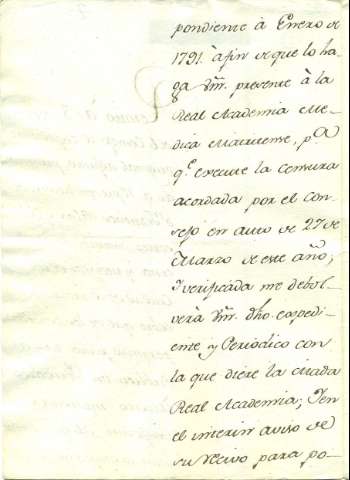 pondiente à Enero de
1791. à fin de que lo ha-
ga Vm. presente à la
Real Academia Me-
dica Matritense, p.ª
q.e execute la censura
acordada por el Con-
sejo en auto de 27 de
Marzo de este año;
Y verificada me debol-
verà Vm. dho expedi-
ente y Periódico con
la que diere la citada
Real Academia; Y en
el interin aviso de
su recivo para po-